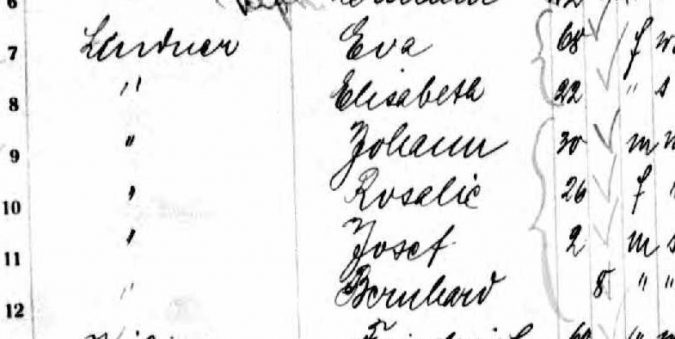 6
7 Lindner Eva 68 f
8 " Elisabeth 22 " s
9 " Johann 30 m
10 " Rosalie 26 f "
11 " Josef 2 m s
12 " Bernhard 8 " "